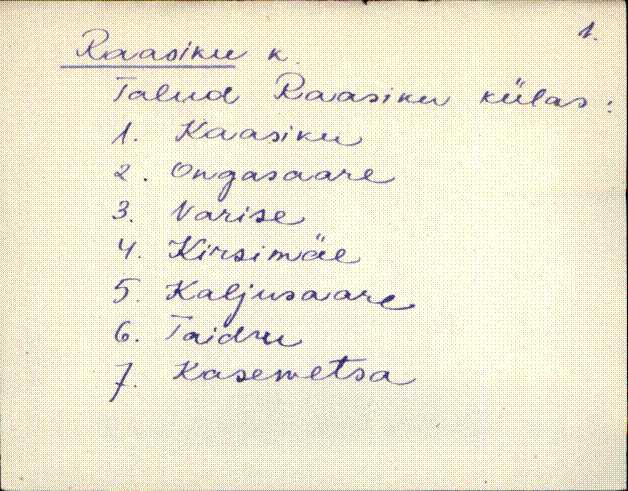 1.
Raasiku k.
Talud Raasiku külas:
1. Kaasiku
2. Ongasaare
3. Varise
4. Kirsimäe
5. Kaljusaare
6. Taidru
7. Kasemetsa